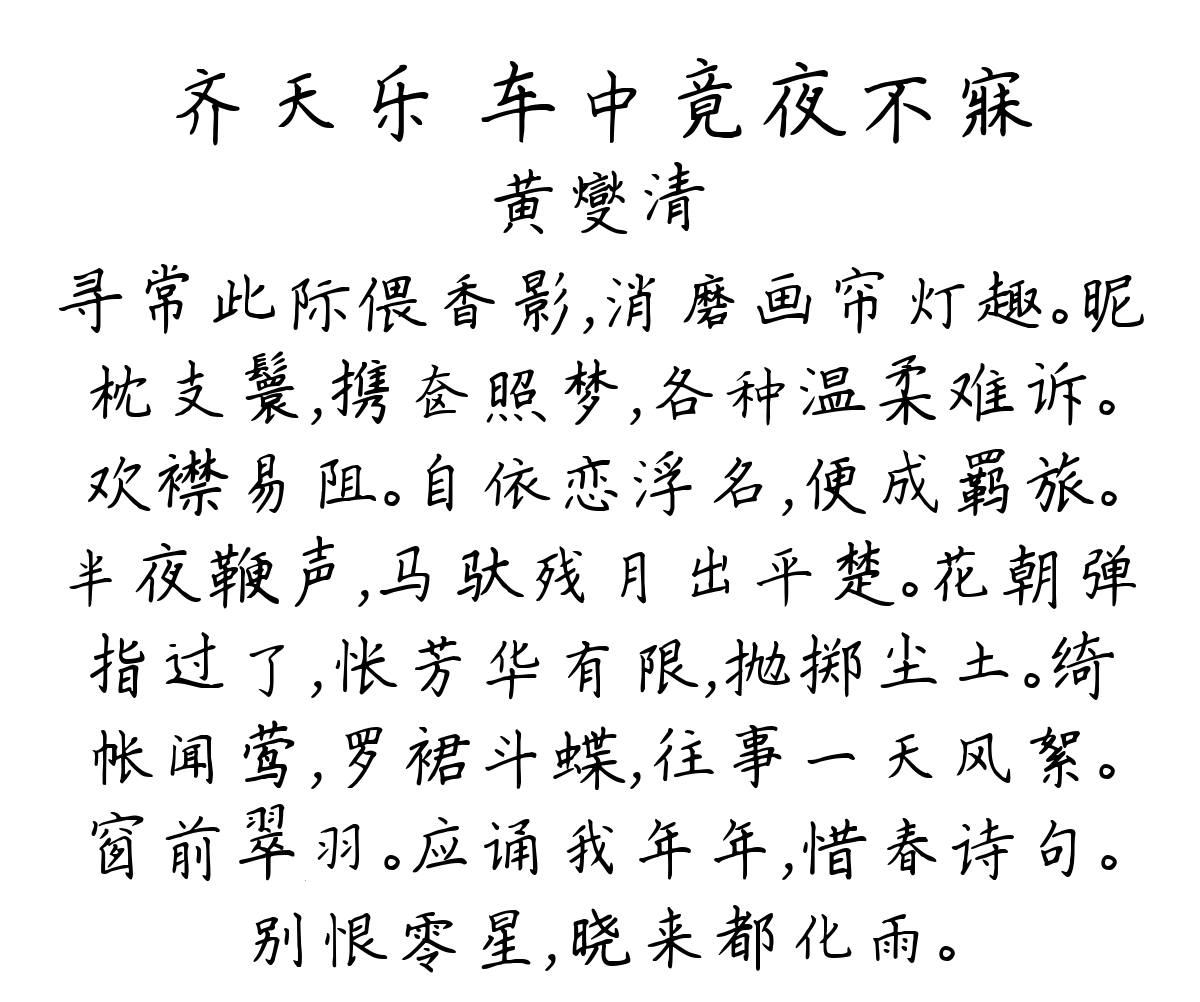 齐天乐 车中竟夜不寐
黄燮清
寻常此际偎香影,消磨画帘灯趣。昵
枕支鬟,携奁照梦,各种温柔难诉。
欢襟易阻。自依恋浮名,便成羁旅。
半夜鞭声,马驮残月出平楚。花朝弹
指过了,怅芳华有限,抛掷尘土。绮
帐闻莺,罗裙斗蝶,往事一天风絮。
窗前翠羽。应诵我年年,惜春诗句。
别恨零星,晓来都化雨。